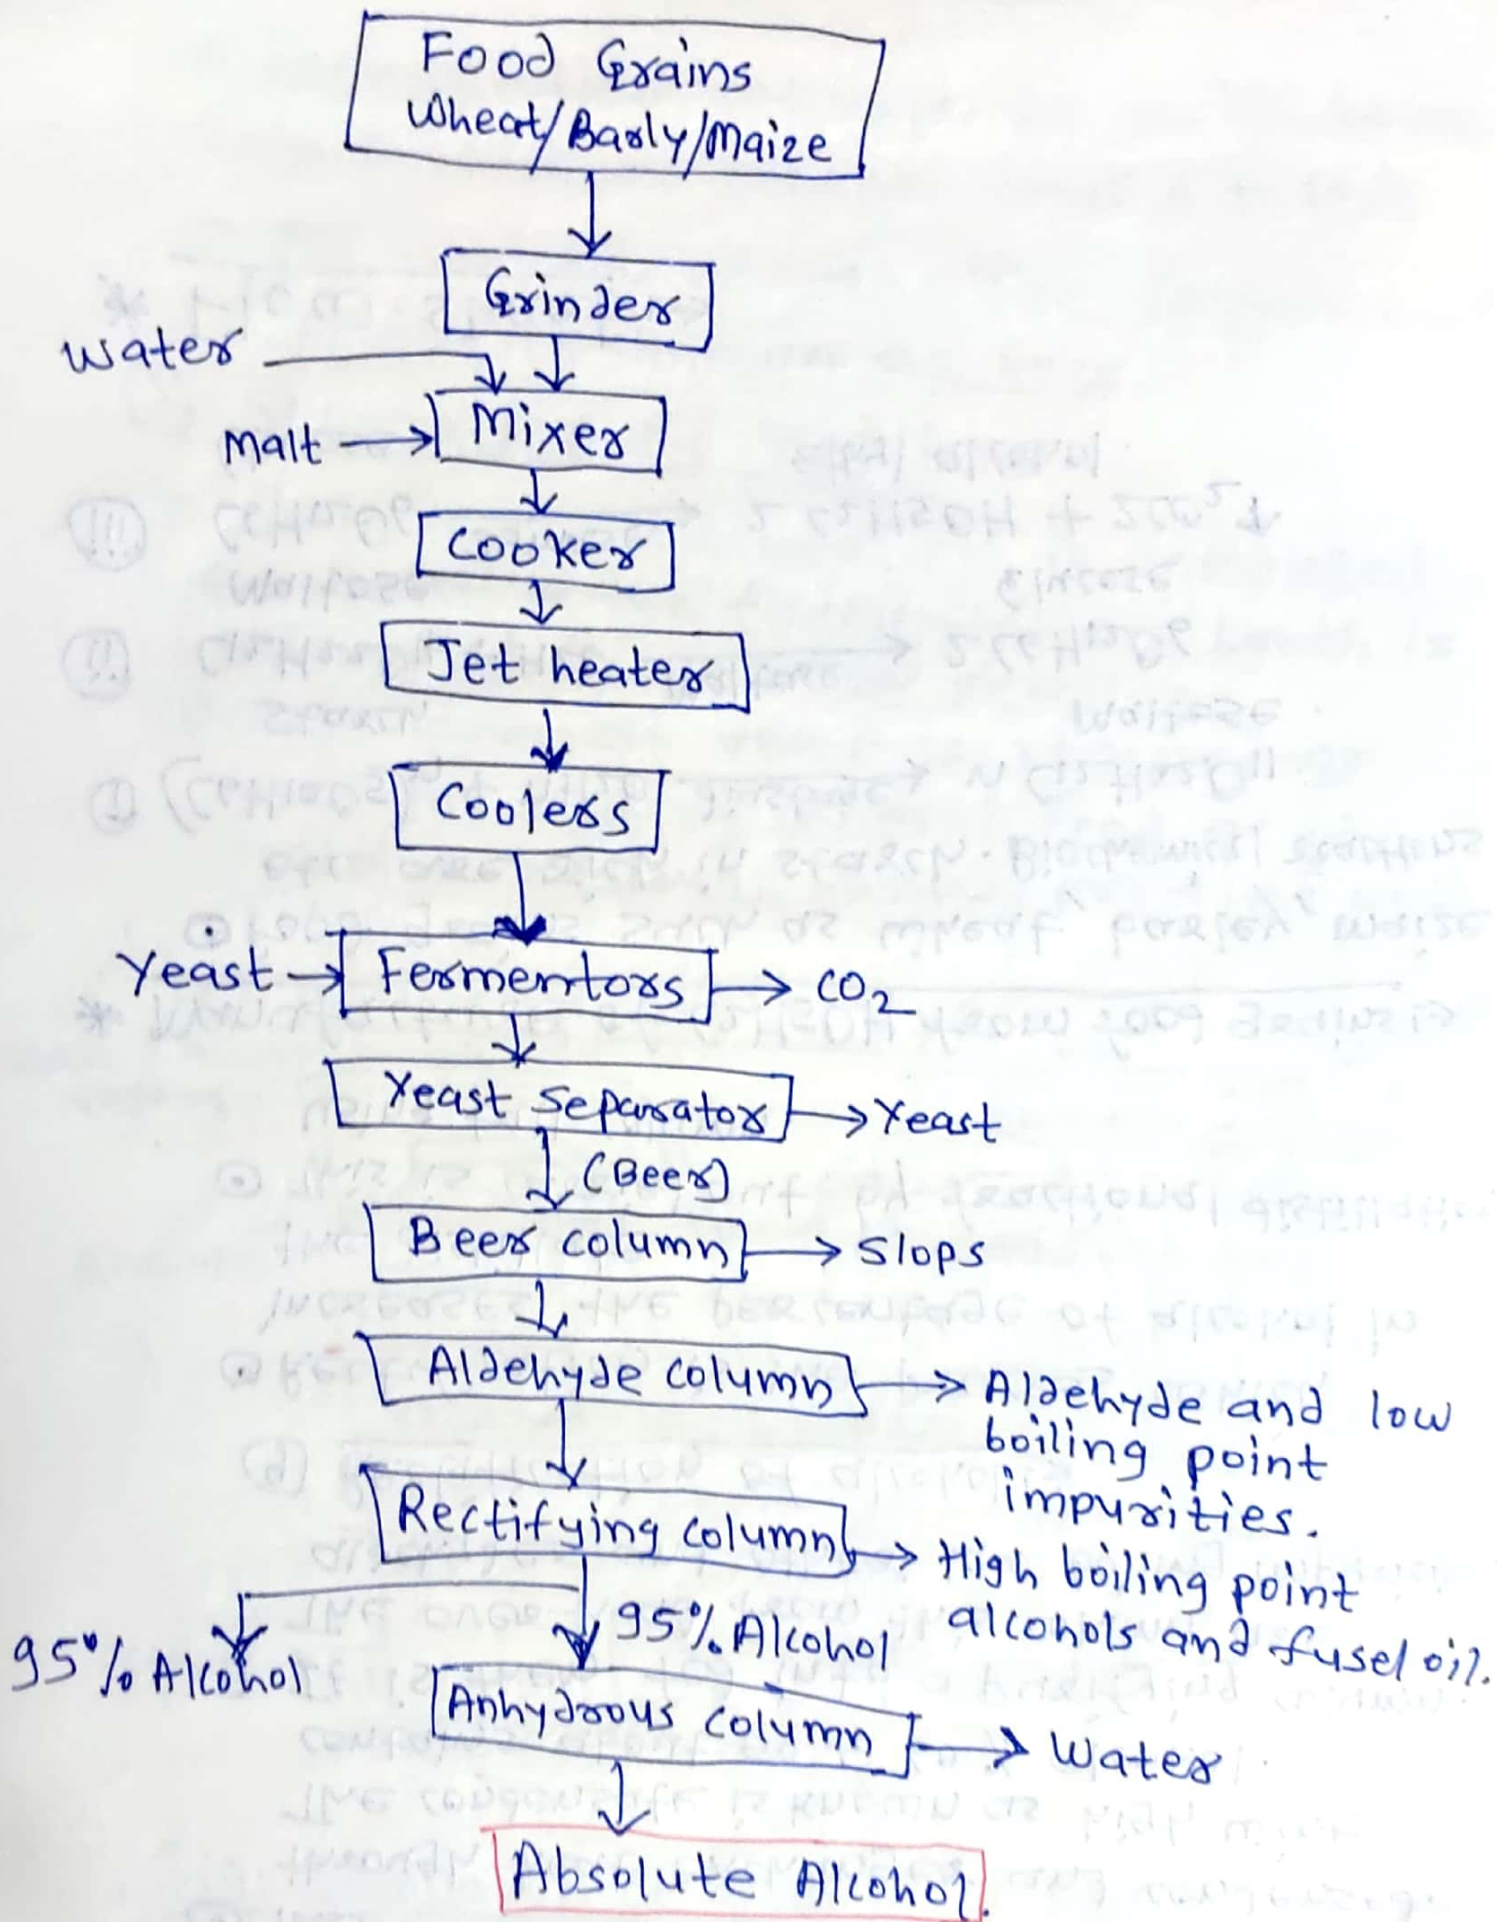 Food Grains
Wheat/Barly/Maize
Grinder
Water
Malt
Mixer
Cooker
Jet heater
Coolers
Yeast
Fermentors
CO2
Yeast Separator
Yeast
(Beer)
Beer column
Slops
Aldehyde column
Aldehyde and low
boiling point
impurities.
Rectifying column
High boiling point
alcohols and fusel oil.
95% Alcohol
95% Alcohol
Anhydrous column
Water
Absolute Alcohol.